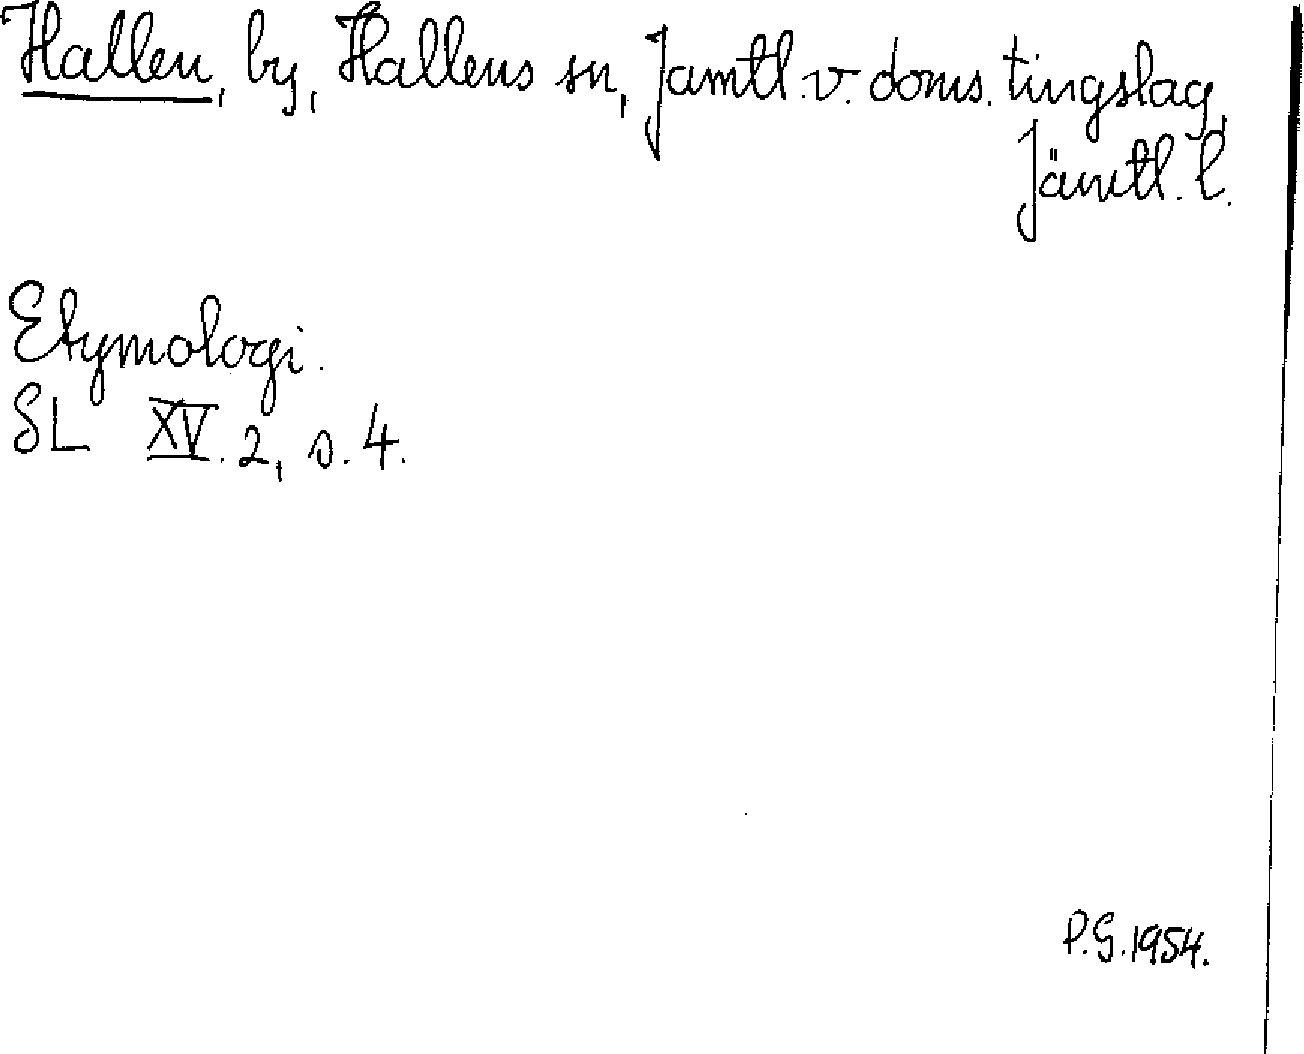 Hallen, by, Hallens sn, Jamtl. v. doms. tingslag,
Jämtl. l.
Etymologi.
SL XV. 2, s. 4.
P.G. 1954.